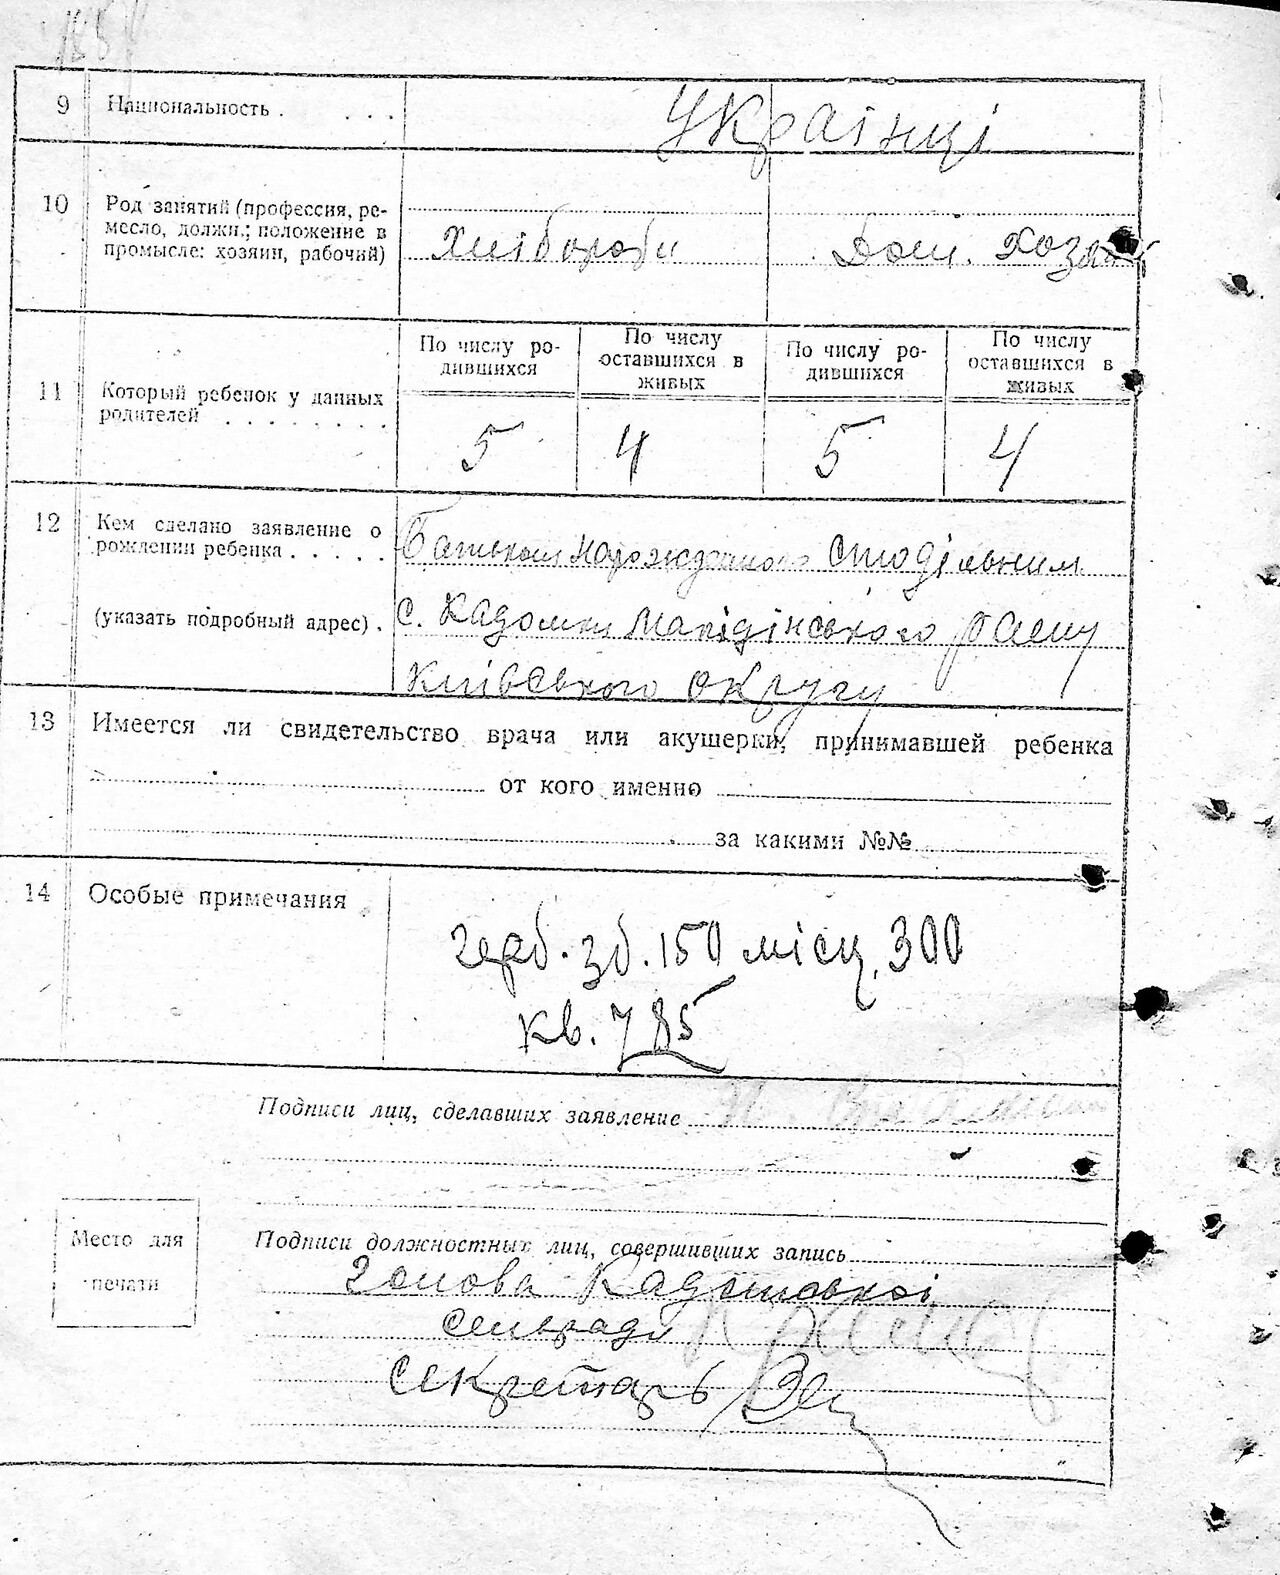 9 Национальность . . . . Українці
10 Род занятий (профессия, ре-
месло, должн.; положение в
промысле: хозяин, рабочий) Хлібороби Дом. Хозяй
По числу ро-
дившихся
По числу
оставшихся в
живых
По числу ро-
дившихся
По числу
оставшихся в
живых
11 Который ребенок у данных
родителей . . . . . . . . 5 4 5 4
12 Кем сделано заявление о
рождении ребенка . . . . . Батьком
(указать подробный адрес) . с. Кадомки району
Київського округу
13 Имеется ли свидетельство врача или акушерки, принимавшей ребенка
от кого именно
за какими №№
14 Особые примечания
герб. зб. 150 місц. 300
кв. 785
Подписи лиц, сделавших заявление
Подписи должностных лиц, совершивших запись
Место для
печати
Голова Кадомської
сельради
Секретарь